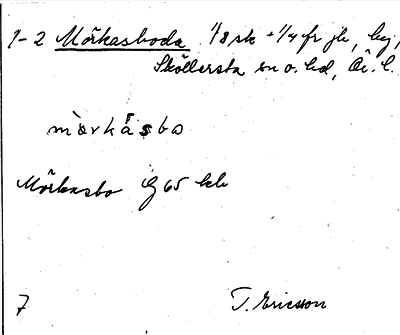 1-2 Mörkasboda 1/8 sk + 1/4 fr jh, by,
Sköllersta sn o. hd, Ö. l.
mörkåsbo
Mörkasbo G 65 kb
7 T. Ericsson